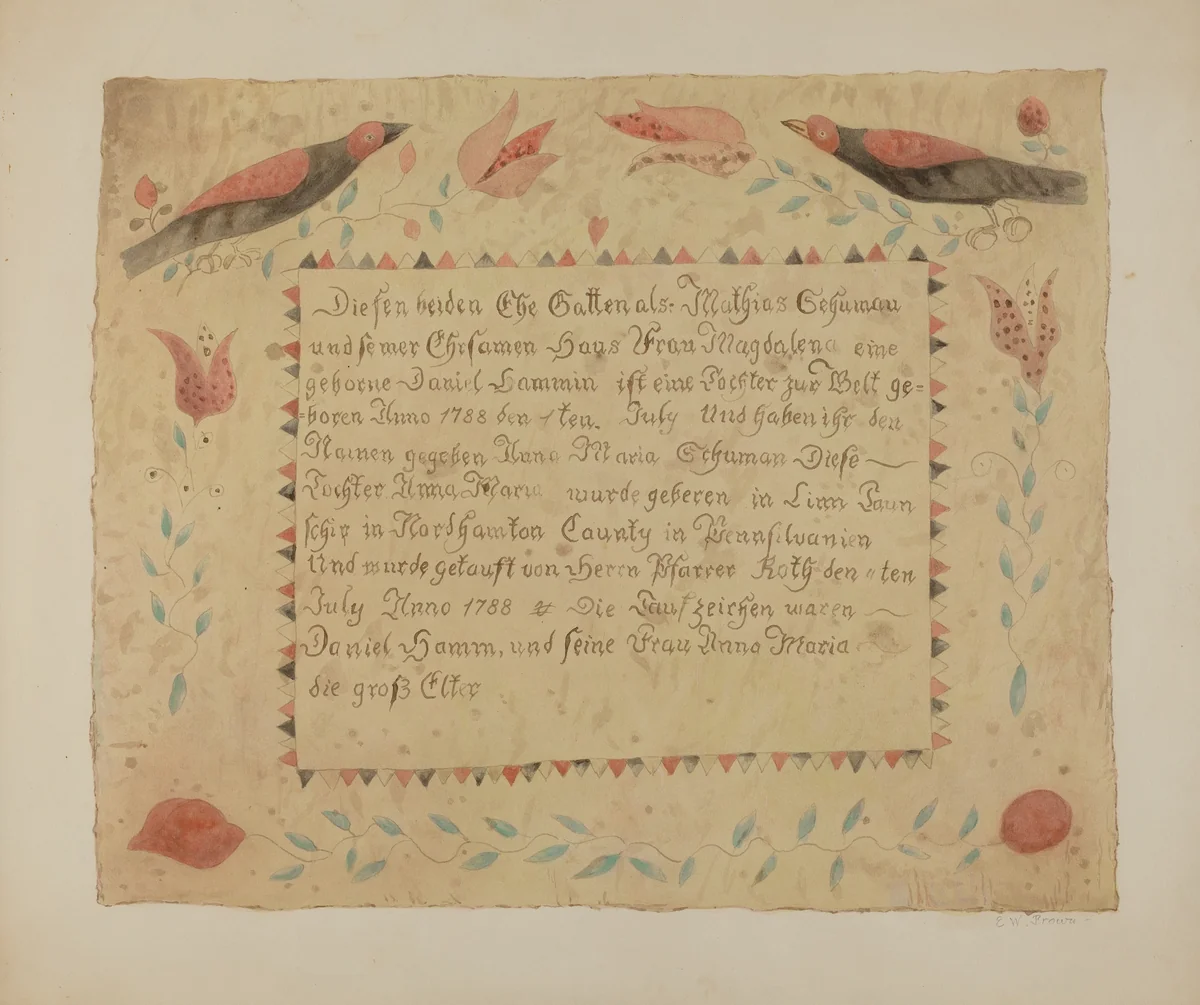 Diesen beiden Ehe Gatten als: Mathias Schuman
und seiner Ehrsamen Haus Frau Magdalena eine
geborne Daniel Hammin ist eine Tochter zur Welt ge=
=boren Anno 1788 den 1ten. July Und haben ihr den
Namen gegeben Anna Maria Schuman Diese
Tochter Anna Maria wurde geboren in Linn Taun
schip in Nordhamton Caunty in Pennsilvanien
Und wurde getauft von Herrn Pfarrer Roth den ten
July Anno 1788 Die Taufzeichen waren
Daniel Hamm, und seine Frau Anna Maria
die groß Elter
E W. Brown